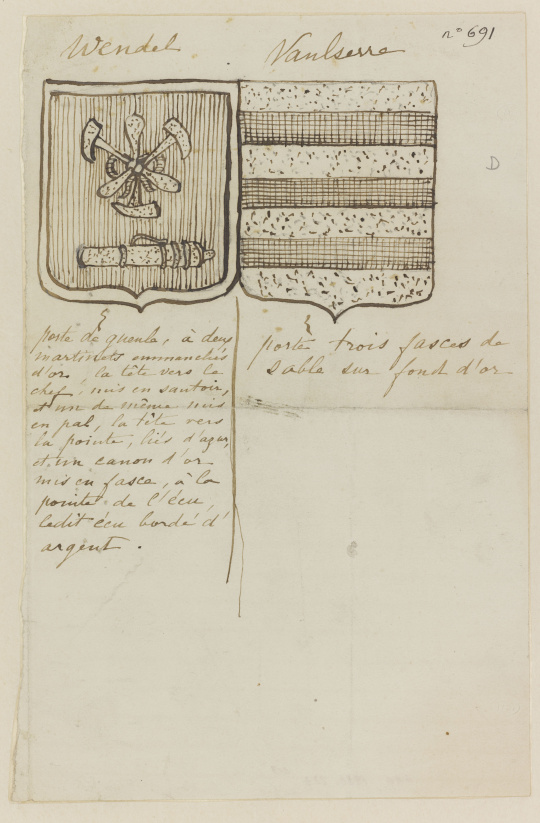 Wendel
Vaulserre
n° 691
D
porte de gueule, à deux
martinets emmanchés
d'or, la tête vers le
chef, mis en sautoir,
et un de même mis
en pal, la tête vers
la pointe, liés d'azur,
et un canon d'or
mis en fasce, à la
pointe de l'écu,
ledit écu bordé d'
argent.
porte trois fasces de
sable sur fond d'or